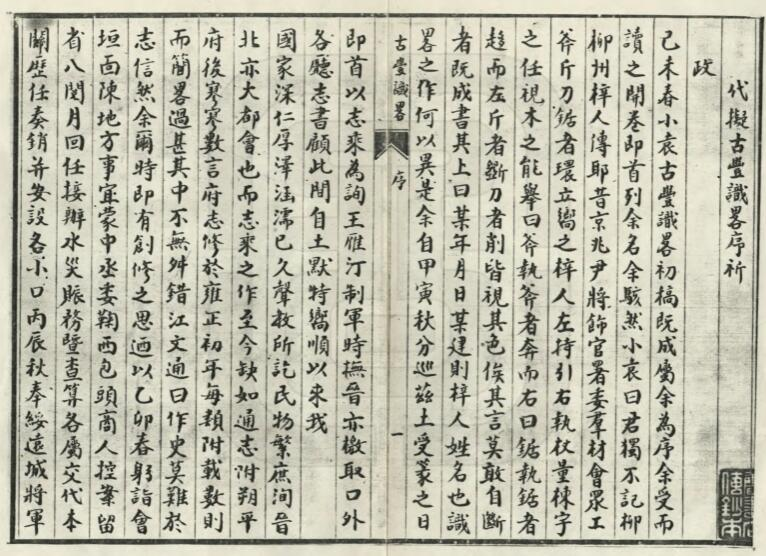 代擬古豐識畧序祈
政
己未春小袁古豐識畧初稿既成屬余為序余受而
讀之開卷即首列余名余駭然小袁曰君獨不記柳
柳州梓人傳耶昔京兆尹將飾官署委羣材會眾工
斧斤刀鋸者環立嚮之梓人左持引右執杖量棟宇
之任視木之能舉曰斧執斧者奔而右曰鋸執鋸者
趨而左斤者斷刀者削皆視其色俟其言莫敢自斷
者既成書其上曰某年月日某建則梓人姓名也識
畧之作何以異是余自甲寅秋分巡茲土受篆之日
古豐識畧
序
一
即首以志乘為詢王雁汀制軍時撫晉亦檄取口外
各廳志書顧此間自土默特嚮順以來我
國家深仁厚澤涵濡已久聲教所訖民物繁庶洵晉
北亦大都會也而志乘之作至今缺如通志附朔平
府後寥寥數言府志修於雍正初年每類附載數則
而簡畧過甚其中不無舛錯江文通曰作史莫難於
志信然余爾時即有創修之思迺以乙卯春躬詣會
垣面陳地方事宜蒙中丞委鞫西包頭商人控案留
省八閱月回任接辦水災賑務暨查算各屬交代本
關歷任奏銷并安設各小口丙辰秋奉綏遠城將軍